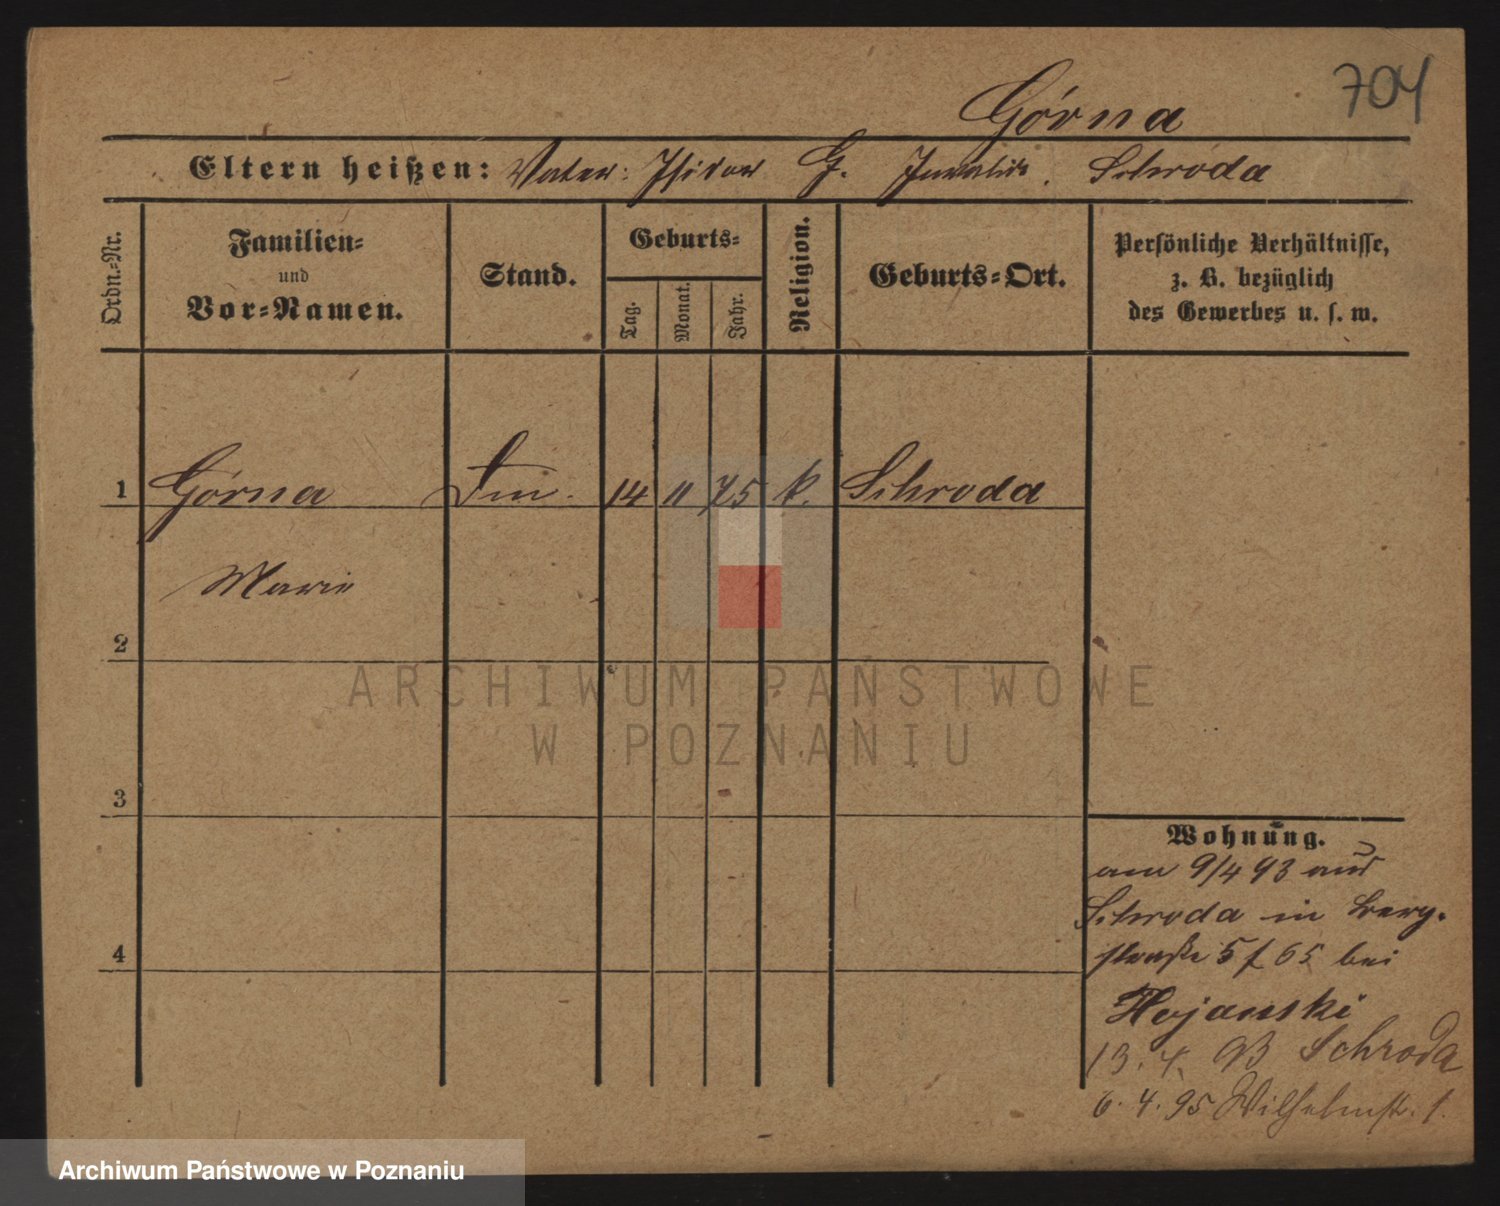 704
Górna
Eltern heißen: Vater: Isidor G. Invalide. Schroda
Ordn.-Nr.
Familien-
und
Vor-Namen.
Stand.
Geburts-
Tag.
Monat.
Jahr.
Religion.
Geburts-Ort.
Persönliche Verhältnisse,
z. B. bezüglich
des Gewerbes u. s. w.
1 Górna 14 11 75 k. Schroda
Marie
2
3
4
Wohnung.
am 9/4 93 aus
Schroda in Berg-
straße 5 bei
13. 4. 93 Schroda
6. 4. 95 Wilhelmstr. 1.
ARCHIWUM PAŃSTWOWE
W POZNANIU
Archiwum Państwowe w Poznaniu